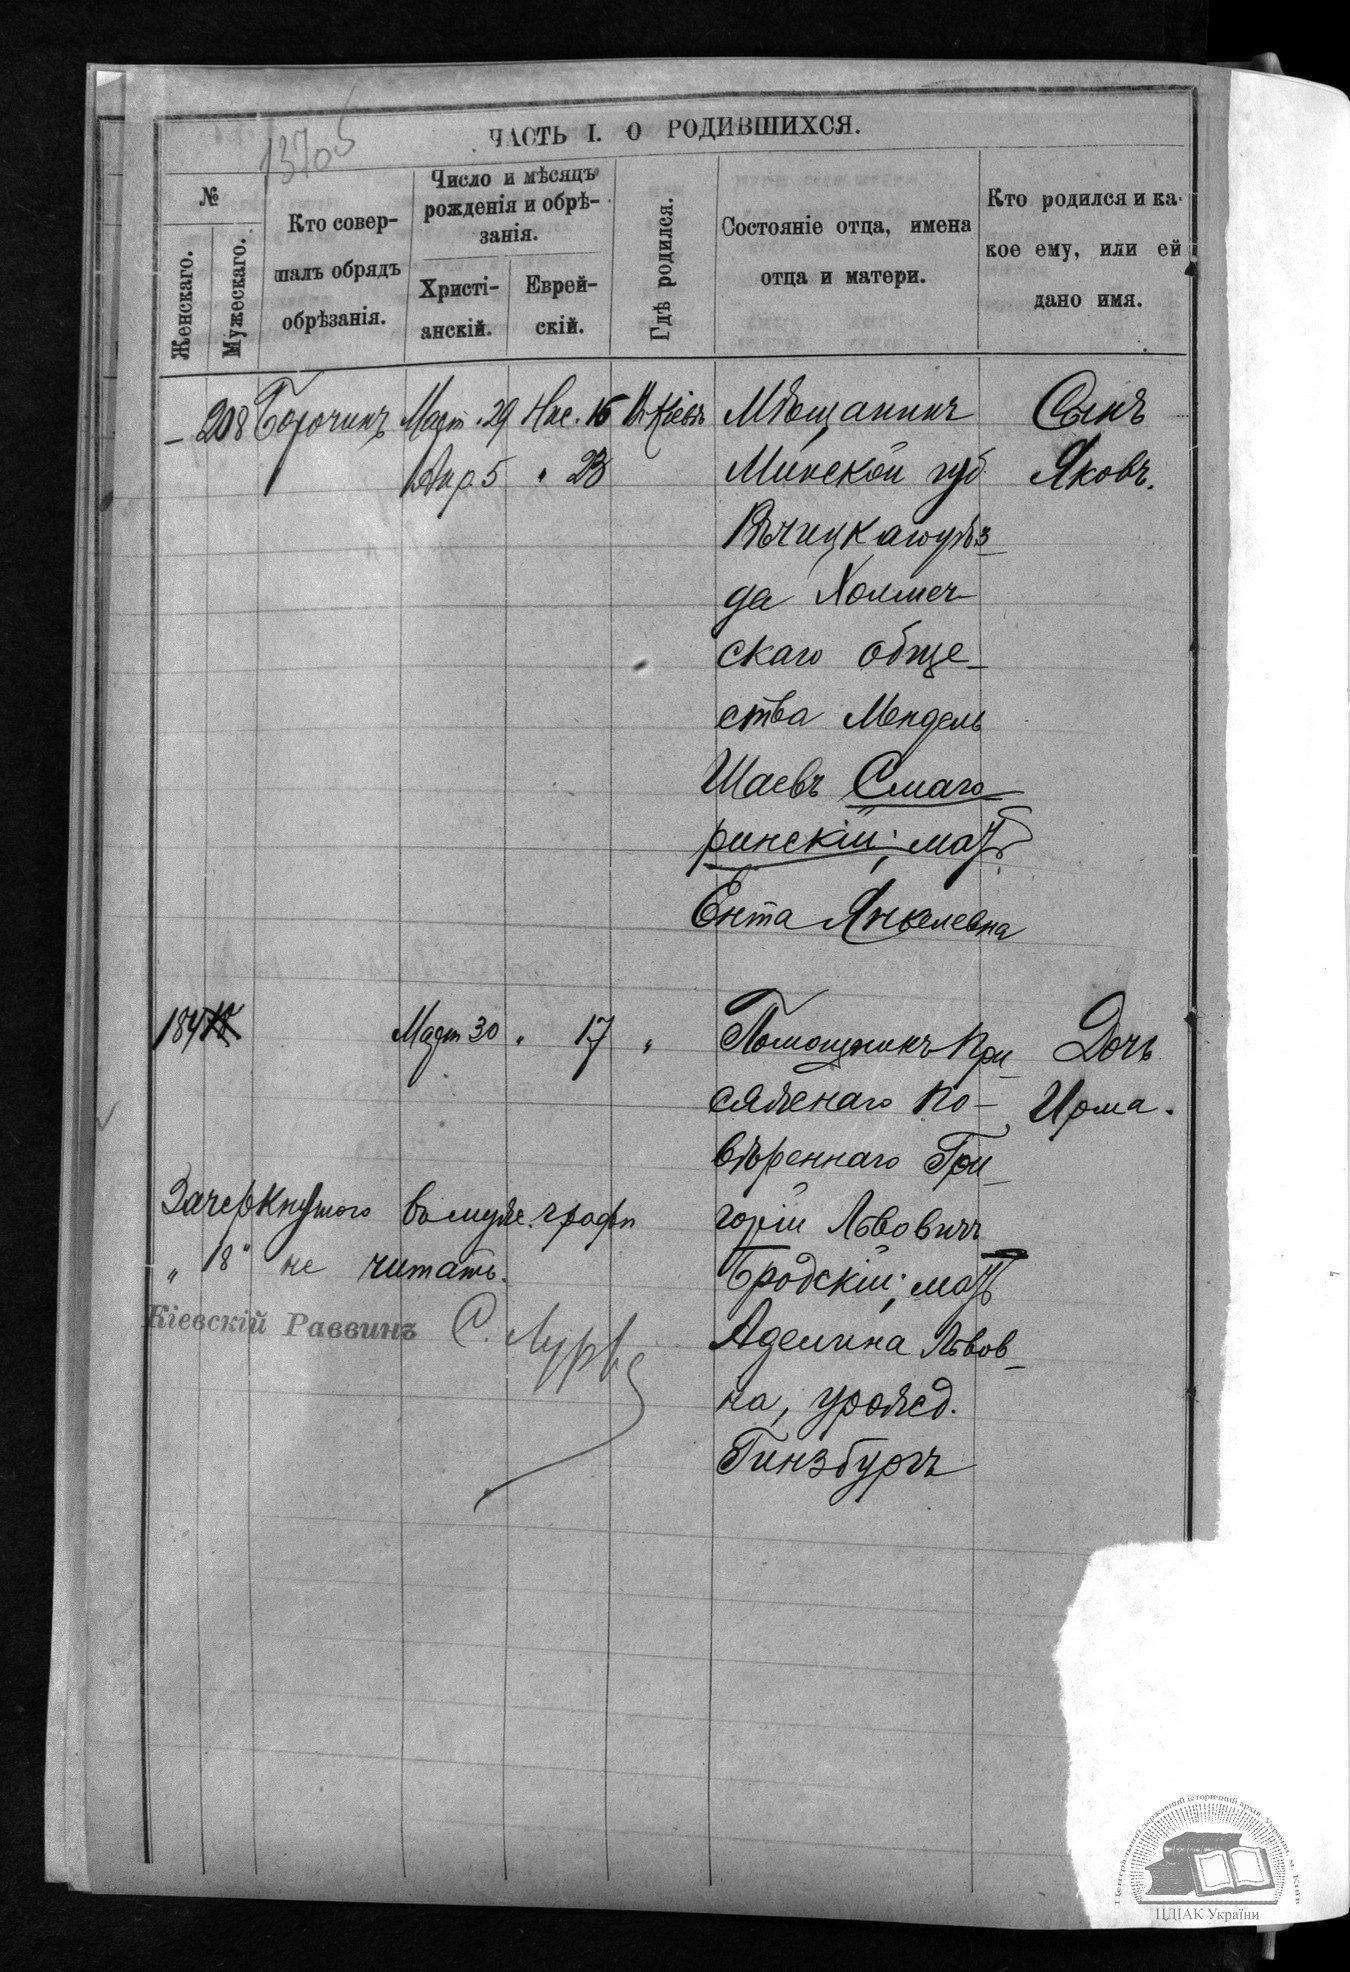 13705
ЧАСТЬ I. О РОДИВШИХСЯ.
№
Женскаго.
Мужескаго.
Кто совер-
шалъ обрядъ
обрѣзанія.
Число и мѣсяцъ
рожденія и обрѣ-
занія.
Христі-
анскій.
Еврей-
скій.
Гдѣ родился.
Состояніе отца, имена
отца и матери.
Кто родился и ка-
кое ему, или ей
дано имя.
– 208 Борочинъ Март. 29 Нис. 15 Въ Кіевѣ Мѣщанинъ Сынъ
Апр 5 " 23 Минской губ. Яковъ.
Рѣчицкаго уѣз-
да Холмеч-
скаго обще-
ства Мендель
Шаевъ Смаго-
ринскій; мать
Ента Янкелевна
184 Март 30 " 17 " Помощникъ При- Дочь
сяжнаго По- Ирма.
вѣреннаго Гри-
горій Львовичъ
Бродскій; мать
Аделина Львов-
на, урожд.
Гинзбургъ
Зачеркнутого въ муж. графѣ
" 18 " не читать.
Кіевскій Раввинъ С. Лурье
Центральний державний історичний архів України, м. Київ
ЦДІАК України